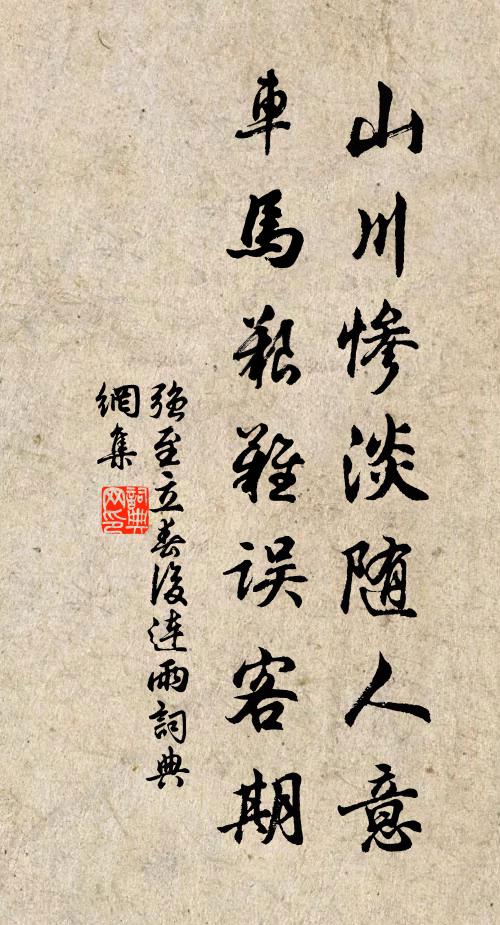 山川慘淡随人意
車馬艱難误客期
強至立春後連雨詞典
網集
詞典
网印